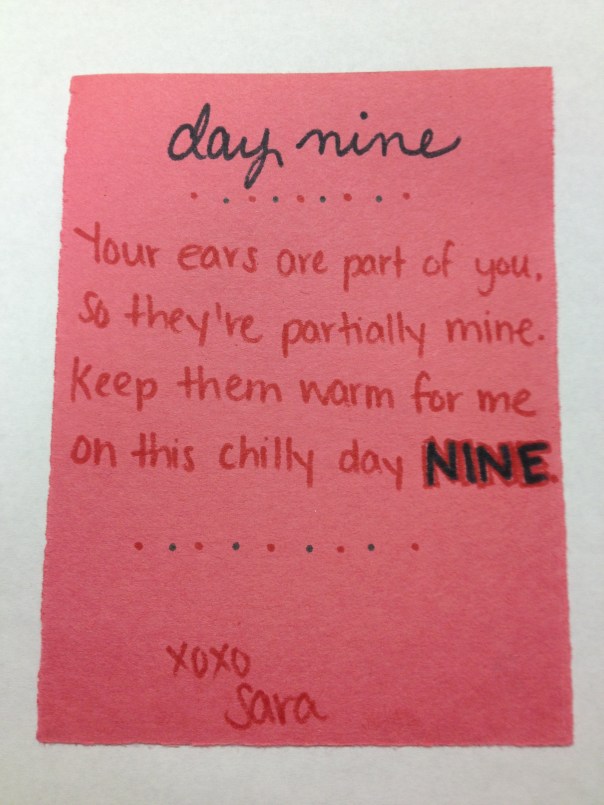 day nine
Your ears are part of you,
so they're partially mine.
Keep them warm for me
on this chilly day NINE.
xoxo
Sara